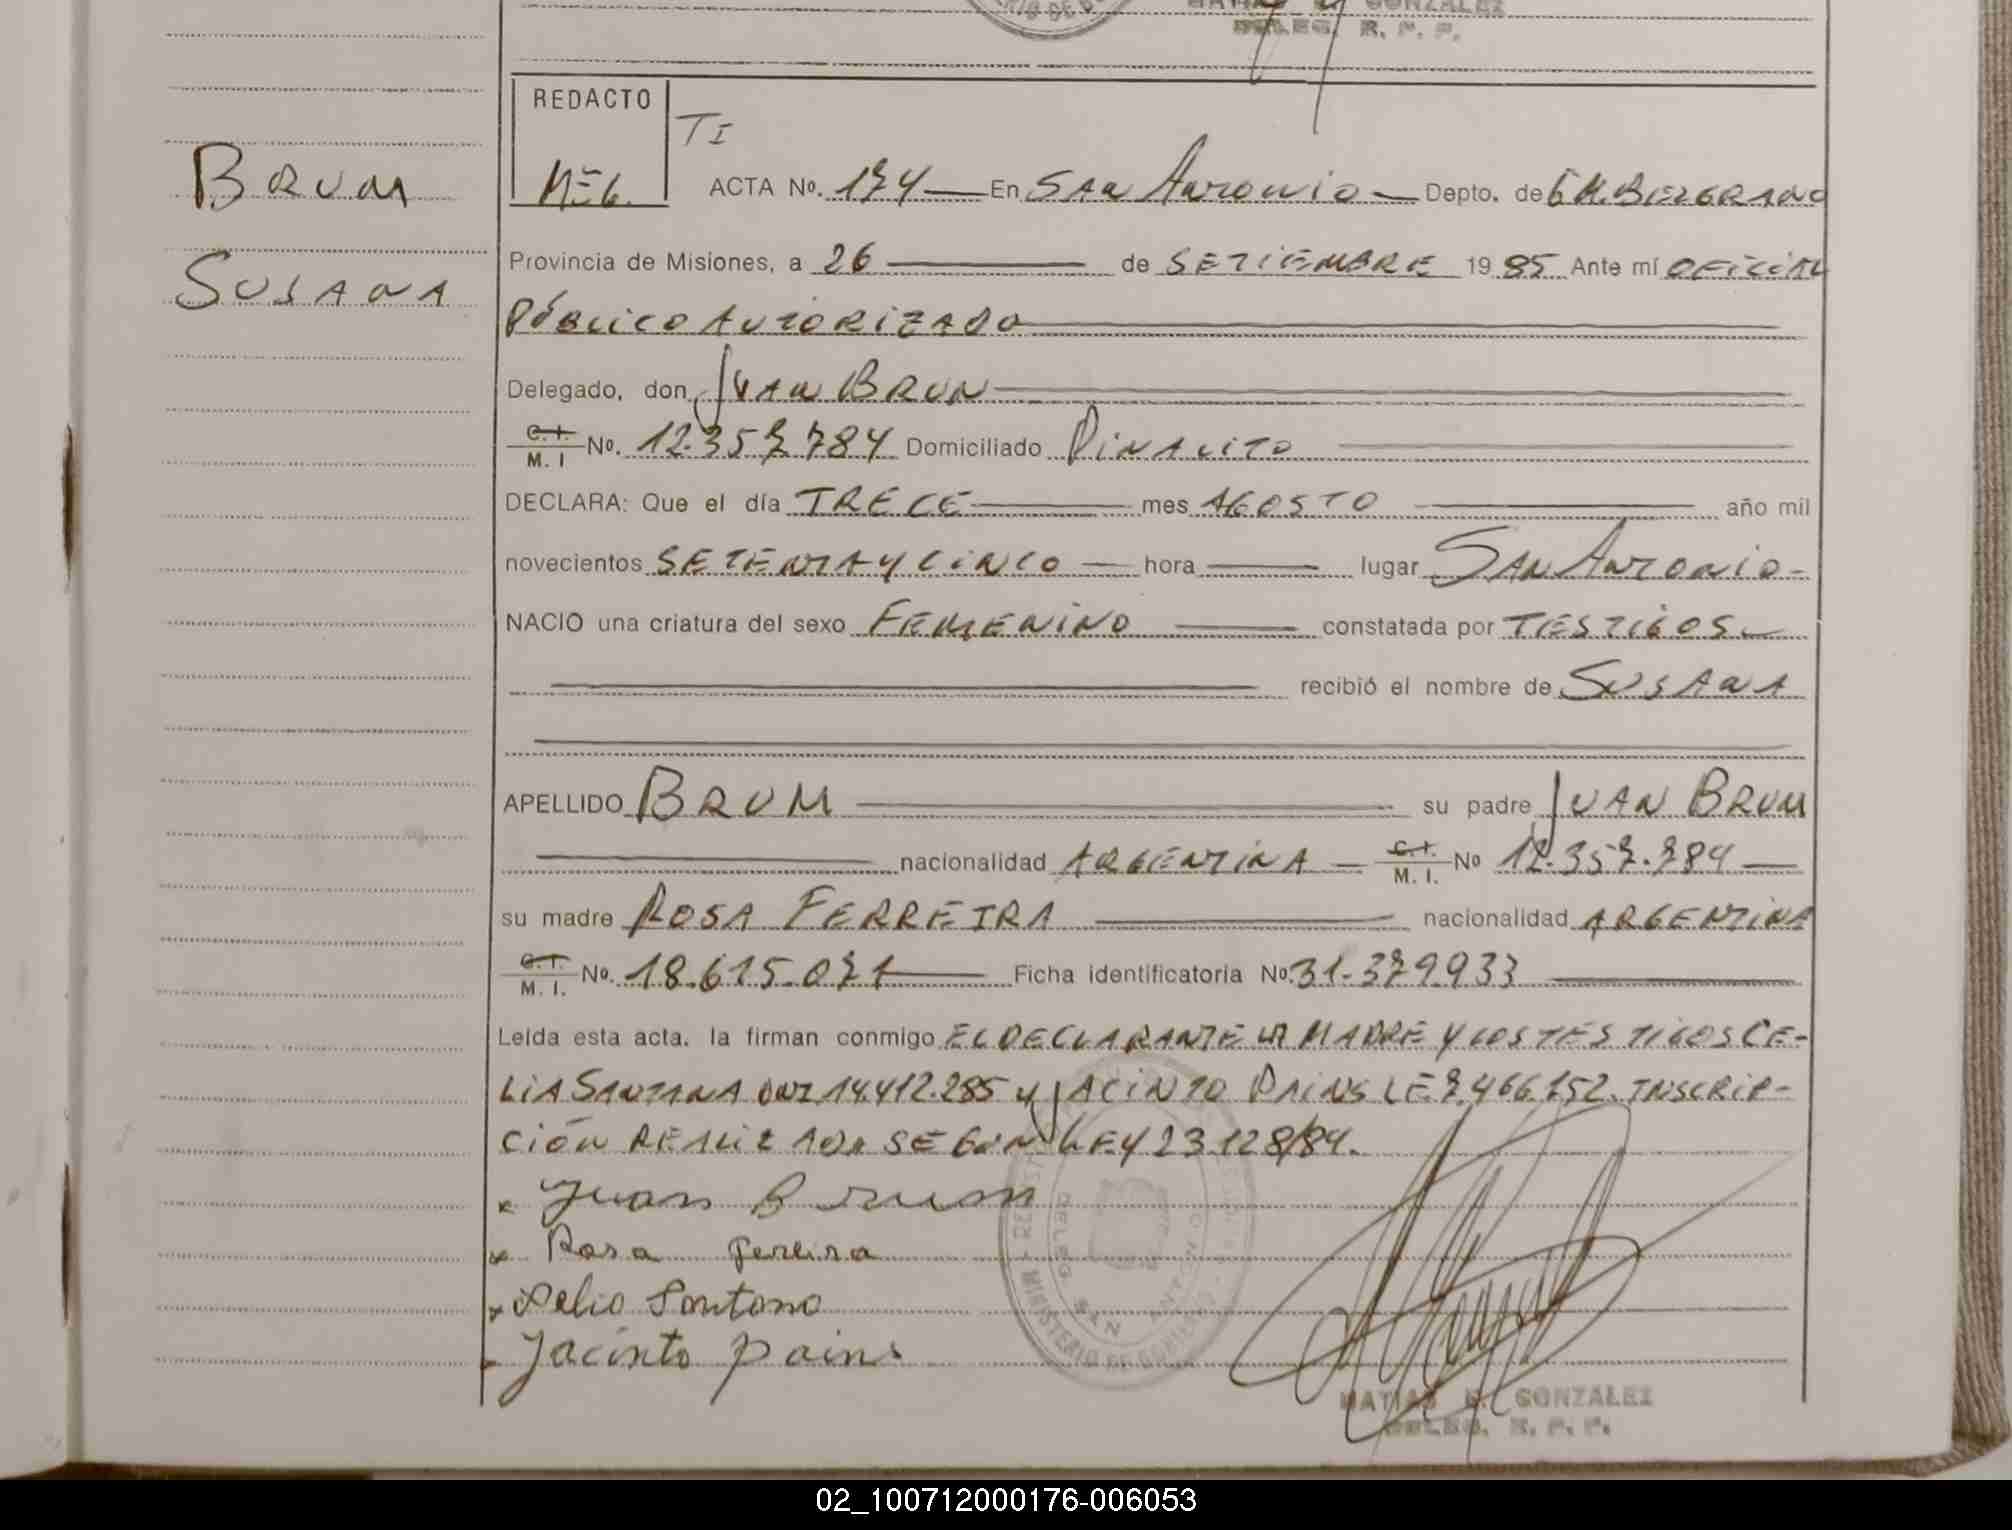 MATIAS GONZALEZ
DELEG. R. P. P.
REDACTO
TI
BRUM
M=G. ACTA Nº. 174 En SAN ANTONIO Depto. de G M. BELGRANO
SUSANA
Provincia de Misiones, a 26 de SETIEMBRE 1985 Ante mí OFICIAL
PÚBLICO AUTORIZADO
Delegado, don JUAN BRUN
C. I. M. I Nº. 12.357.784 Domiciliado PIÑALITO
DECLARA: Que el día TRECE mes AGOSTO año mil
novecientos SETENTA Y CINCO hora lugar SAN ANTONIO
NACIO una criatura del sexo FEMENINO constatada por TESTIGOS
recibió el nombre de SUSANA
APELLIDO BRUM su padre JUAN BRUM
nacionalidad ARGENTINA C. I. M. I. Nº 12.357.784
su madre ROSA FERREIRA nacionalidad ARGENTINA
C. I. M. I. Nº. 18.615.071 Ficha identificatoria Nº. 31.379.933
Leída esta acta, la firman conmigo EL DECLARANTE LA MADRE Y LOS TESTIGOS CE-
LIA SANTANA DNI 14.412.285 y JACINTO PAINS LE.7.466.152. INSCRIP-
CIÓN REALIZADA SEGÚN LEY 23.128/84.
x Juan Brum
x Rosa fereira
x Selia Santana
x Jacinto pains
MINISTERIO DE GOBIERNO
DELEG SAN ANTONIO
MATIAS GONZALEZ
DELEG. R. P. P.
02_100712000176-006053